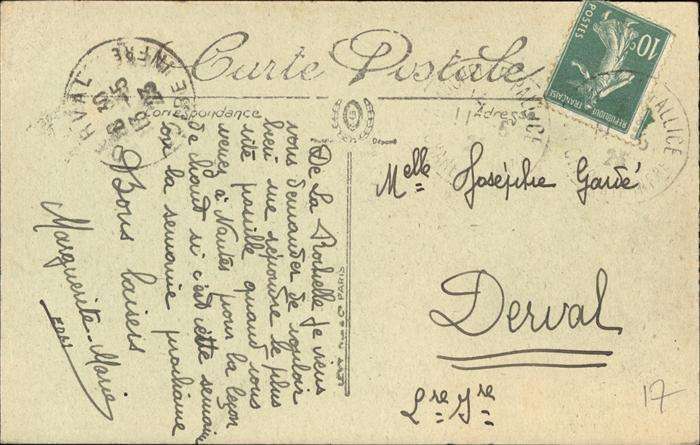 Carte Postale
Correspondance
Adresse
RÉPUBLIQUE FRANÇAISE
POSTES
10c
De La Rochelle je viens
vous demander de vouloir
bien me répondre le plus
vite possible quand vous
venez à Nantes pour la leçon
de chant si c'est cette semaine
ou la semaine prochaine
Bons baisers
Marguerite-Marie
Melle Josèphe Gardé
Derval
Lre Ire
17
PARIS